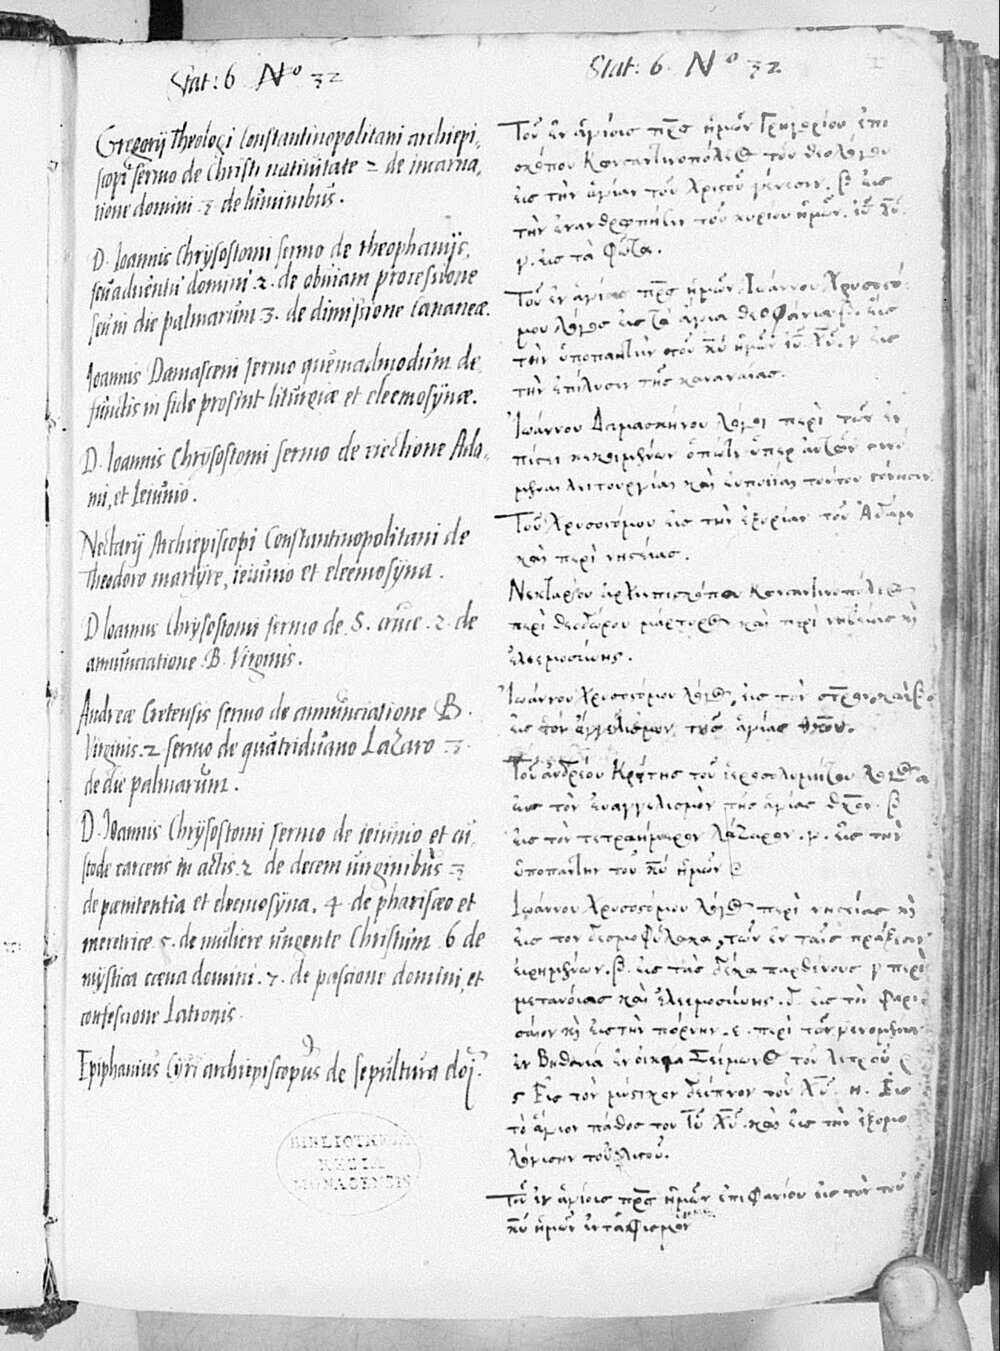 Stat: 6 Nº 32
Gregorij Theologi Constantinopolitani archiepi,
scopi sermo de Christi nativitate 2 de incarna,
tione domini .3. de luminibus.
D. Ioannis Chrÿsostomi sermo de theophanijs,
seu adventu domini .2. de obviam processione
seu in die palmarum 3. de dimissione Cananeæ.
Ioannis Damasceni sermo quemadmodum de,
functis in fide prosint liturgiæ et eleemosÿnæ.
D. Ioannis Chrÿsostomi sermo de eiectione Ada,
mi, et Ieiunio.
Nectarij Archiepiscopi Constantinopolitani de
Theodoro martÿre, ieiunio et eleemosÿna.
D Ioannis Chrÿsostomi sermo de S. cruce .2. de
annunciatione B. Virginis.
Andreæ Cretensis sermo de annunciatione B.
Virginis .2 sermo de quatriduano Lazaro 3.
de die palmarum.
D. Ioannis Chrÿsostomi sermo de ieiunio et cu,
stode carceris in actis .2 de decem virginibus 3
de pænitentia et eleemosÿna. 4 de pharisæo et
meretrice 5. de muliere ungente Christum 6 de
mÿstica cœna domini .7. de passione domini, et
confessione Latronis.
Epiphanius Cÿpri archiepiscopus de sepultura doi
BIBLIOTHECA
REGIA
MONACENSIS
Stat: 6 Nº 32.
Τοῦ ἐν ἁγίοις πρς ἡμῶν Γρηγορίου ἐπι
σκόπου Κονσταντινοπόλεως τοῦ θεολόγου
εἰς τὴν ἁγίαν τοῦ Χριστοῦ γένεσιν. β εἰς
τὴν ἐνανθρόπησιν τοῦ κυρίου ἡμῶν ιυ χυ.
γ. εἰς τὰ φῶτα.
Τοῦ ἐν ἁγίοις πρς ἡμῶν Ἰωάννου Χρυσοστό
μου λόγος εἰς τὰ ἅγια θεοφάνια β. εἰς
τὴν ὑποπαντὴν τοῦ κυ ἡμῶν ιυ χυ. γ εἰς
τὴν ἐπίλυσιν τῆς χαναναίας.
Ἰωάννου Δαμασκήνου λόγοι περὶ τῶν ἐν
πίστει κεκοιμημένων ὁπῶς ὑπὲρ αὐτῶν γινό
μεναι λειτουργίαι καὶ εὐποιίαι τούτου ὀνήσιν
Τοῦ Χρυσοστόμου εἰς τὴν ἐξορίαν τοῦ Ἀδάμ
καὶ περὶ νηστείας.
Νεκταρίου ἀρχιεπισκόπου Κονσταντινοπόλεως
περὶ θεοδώρου μάρτυρος καὶ περὶ νηστείας κὶ
ἐλεεμοσύνης.
Ἰωάννου Χρυσοστόμου λόγος εἰς τὸν στρον καὶ β
εἰς τὸν ἀγγελισμὸν τῆς ἁγίας θκου.
Τοῦ ἀνδρέου Κρήτης τοῦ ἱεροσολυμίτου λόγος α
εἰς τὸν εὐαγγελισμὸν τῆς ἁγίας θκου. β
εἰς τὸν τετραήμερον Λάζαρον. γ. εἰς τὴν
ὑποπαντὴν τοῦ κυ ἡμῶν
Ἰωάννου Χρυσοστόμου λόγος περὶ νηστείας κὶ
εἰς τὸν δεσμοφύλακα, τῶν ἐν ταῖς πράξεσιν
εἰρημένων. β. εἰς τὰς δέκα παρθένους γ περὶ
μετανοίας καὶ ἐλεεμοσύνης. δ. εἰς τὸν φαρι
σαῖον κὶ εἰς τὴν πόρνην. ε. περὶ τῶν γενομένων
ἐν Βηθανία ἐν οἰκία Σείμωνος τοῦ λεπροῦ
ς Εἰς τὸν μύστικον δεῖπνον τοῦ Χυ. η. Εἰς
τὸ ἅγιον πάθος τοῦ Ιυ Χυ. καὶ εἰς τὴν ἐξομο
λόγησιν τοῦ λῃστοῦ.
Τοῦ ἐν ἁγίοις πρς ἡμῶν ἐπιφανίου εἰς τὸν τοῦ
κυ ἡμῶν ἐνταφισμόν